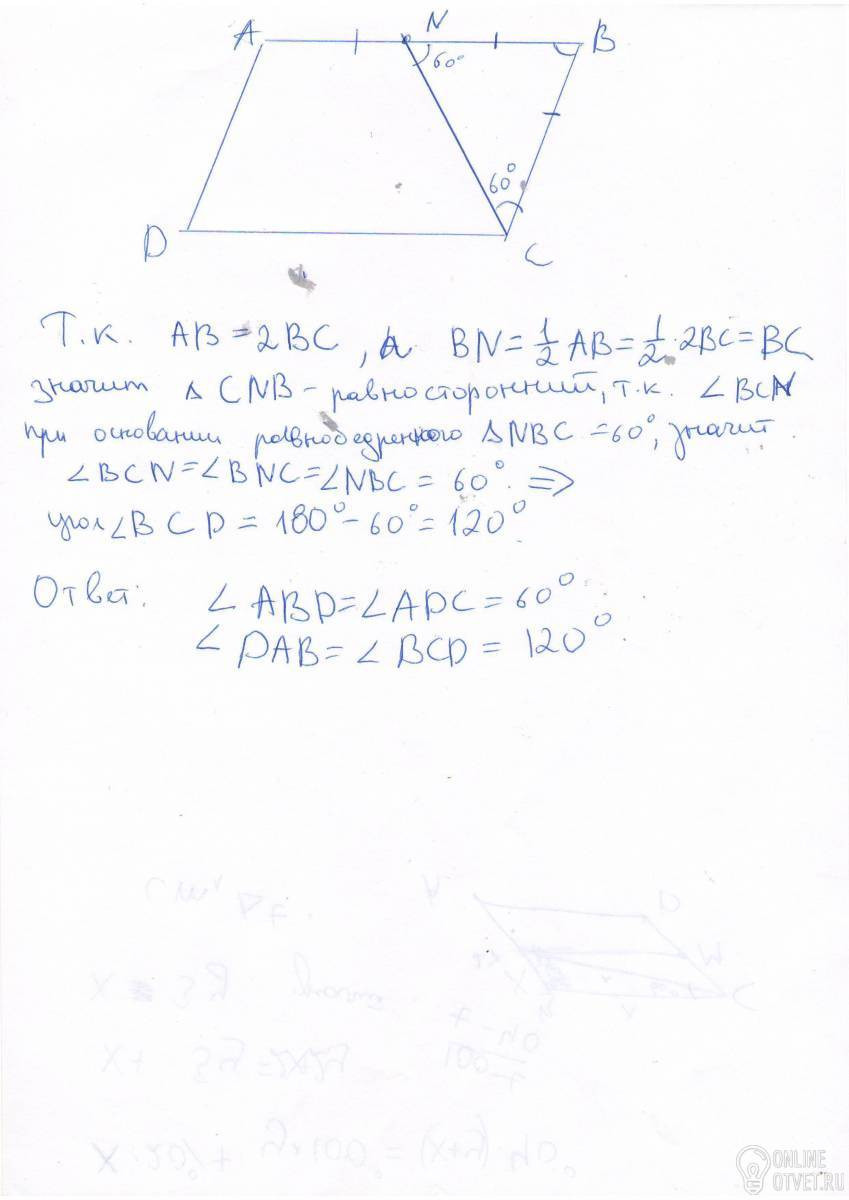 A N B
60°
60°
D C
Т.к. AB = 2BC, а BN = 1/2 AB = 1/2 · 2BC = BC
значит △ CNB – равносторонний, т.к. ∠BCN
при основании равнобедренного △NBC = 60°, значит
∠BCN = ∠BNC = ∠NBC = 60° ⇒
угол ∠BCD = 180° – 60° = 120°
Ответ: ∠ABD = ∠ADC = 60°.
∠DAB = ∠BCD = 120°.
ONLINE
OTVET.RU